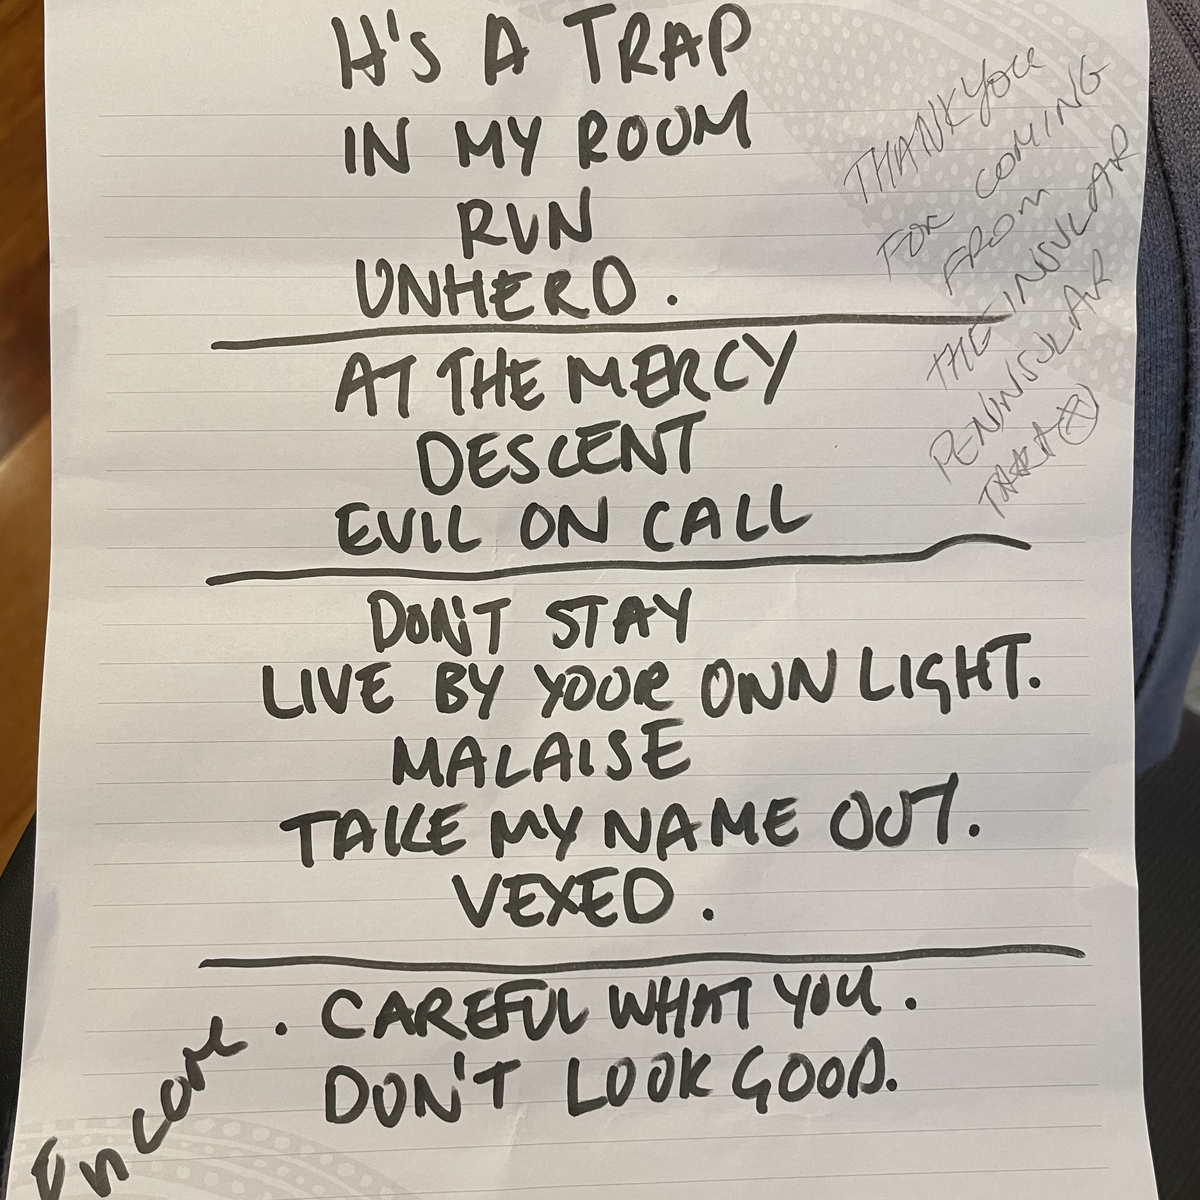 It's A TRAP
IN MY ROOM
RUN
UNHERD.
AT THE MERCY
DESCENT
EVIL ON CALL
DON'T STAY
LIVE BY YOUR OWN LIGHT.
MALAISE
TAKE MY NAME OUT.
VEXED.
Encore. CAREFUL WHAT YOU.
DON'T LOOK GOOD.
THANK YOU
FOR COMING
FROM
THE INSULAR
PENINSULAR